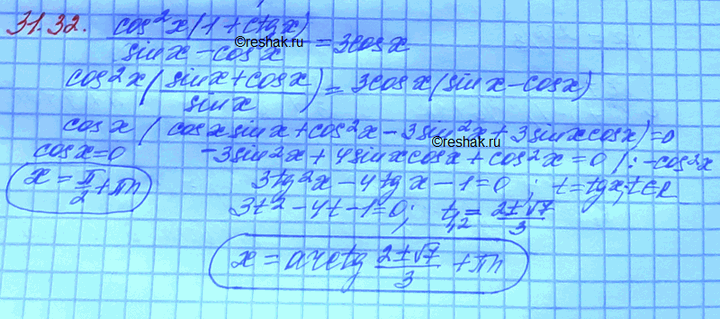 31.32. cos²x(1+ctgx)/(sinx-cosx) = 3cosx
©reshak.ru
cos²x((sinx+cosx)/sinx) = 3cosx(sinx-cosx)
©reshak.ru
cosx(cosxsinx+cos²x-3sin²x+3sinxcosx)=0
cosx=0 -3sin²x+4sinxcosx+cos²x=0 /:-cos²x
x=π/2+πn 3tg²x-4tgx-1=0; t=tgx, t∈R
3t²-4t-1=0; t₁,₂=(2±√7)/3
x=arctg (2±√7)/3 +πn